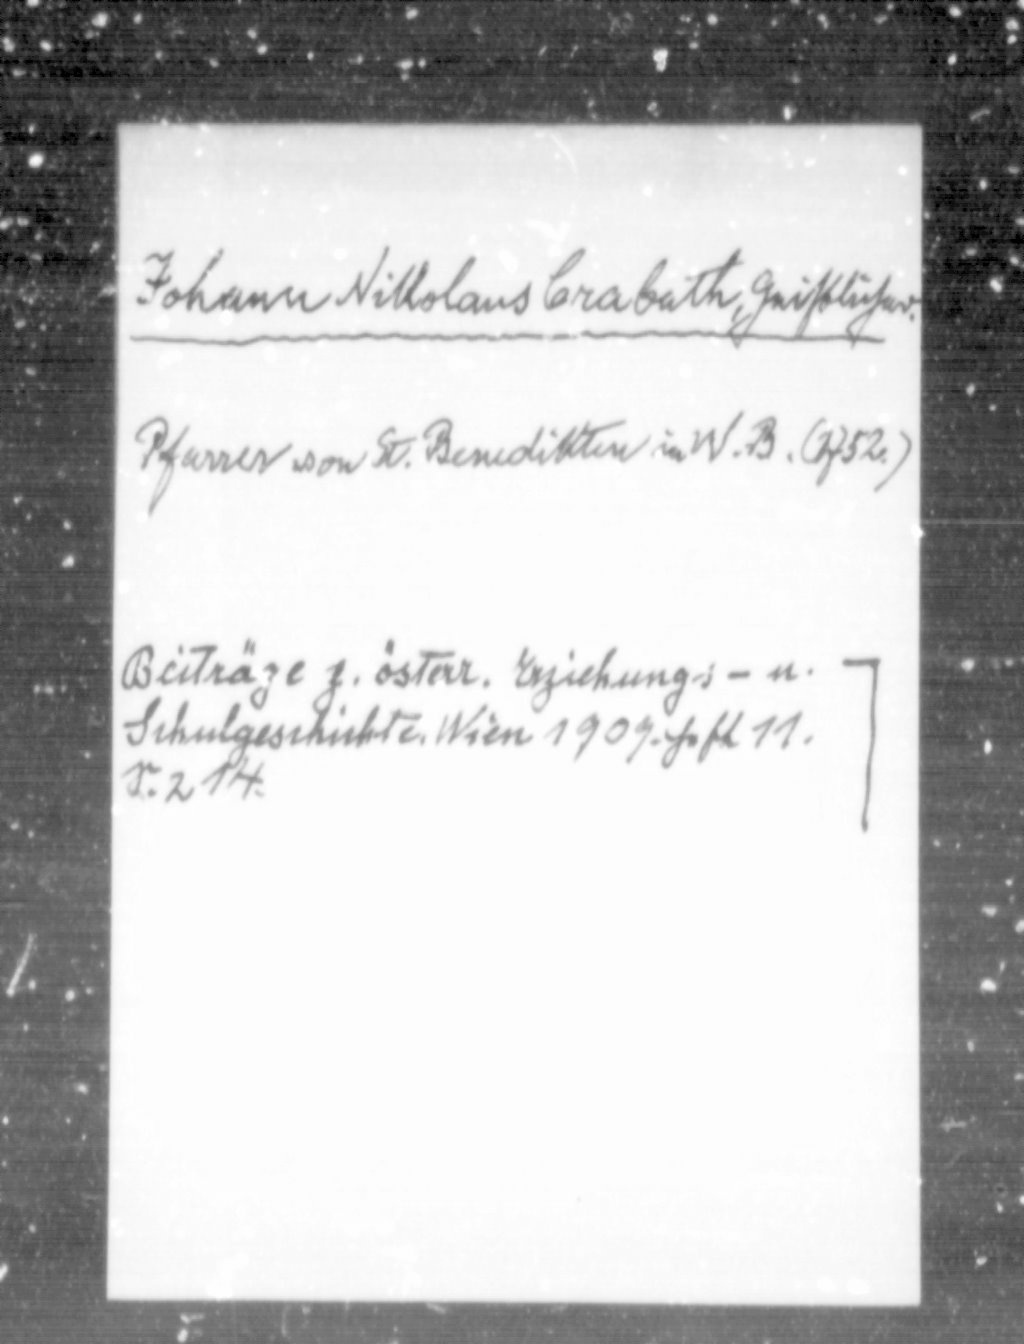 Johann Nikolaus Crabath, Geistlicher.
Pfarrer von St. Benedikten in W. B. (1752.)
Beiträge z. österr. Erziehungs- u.
Schulgeschichte. Wien 1909. Heft 11.
S. 214.